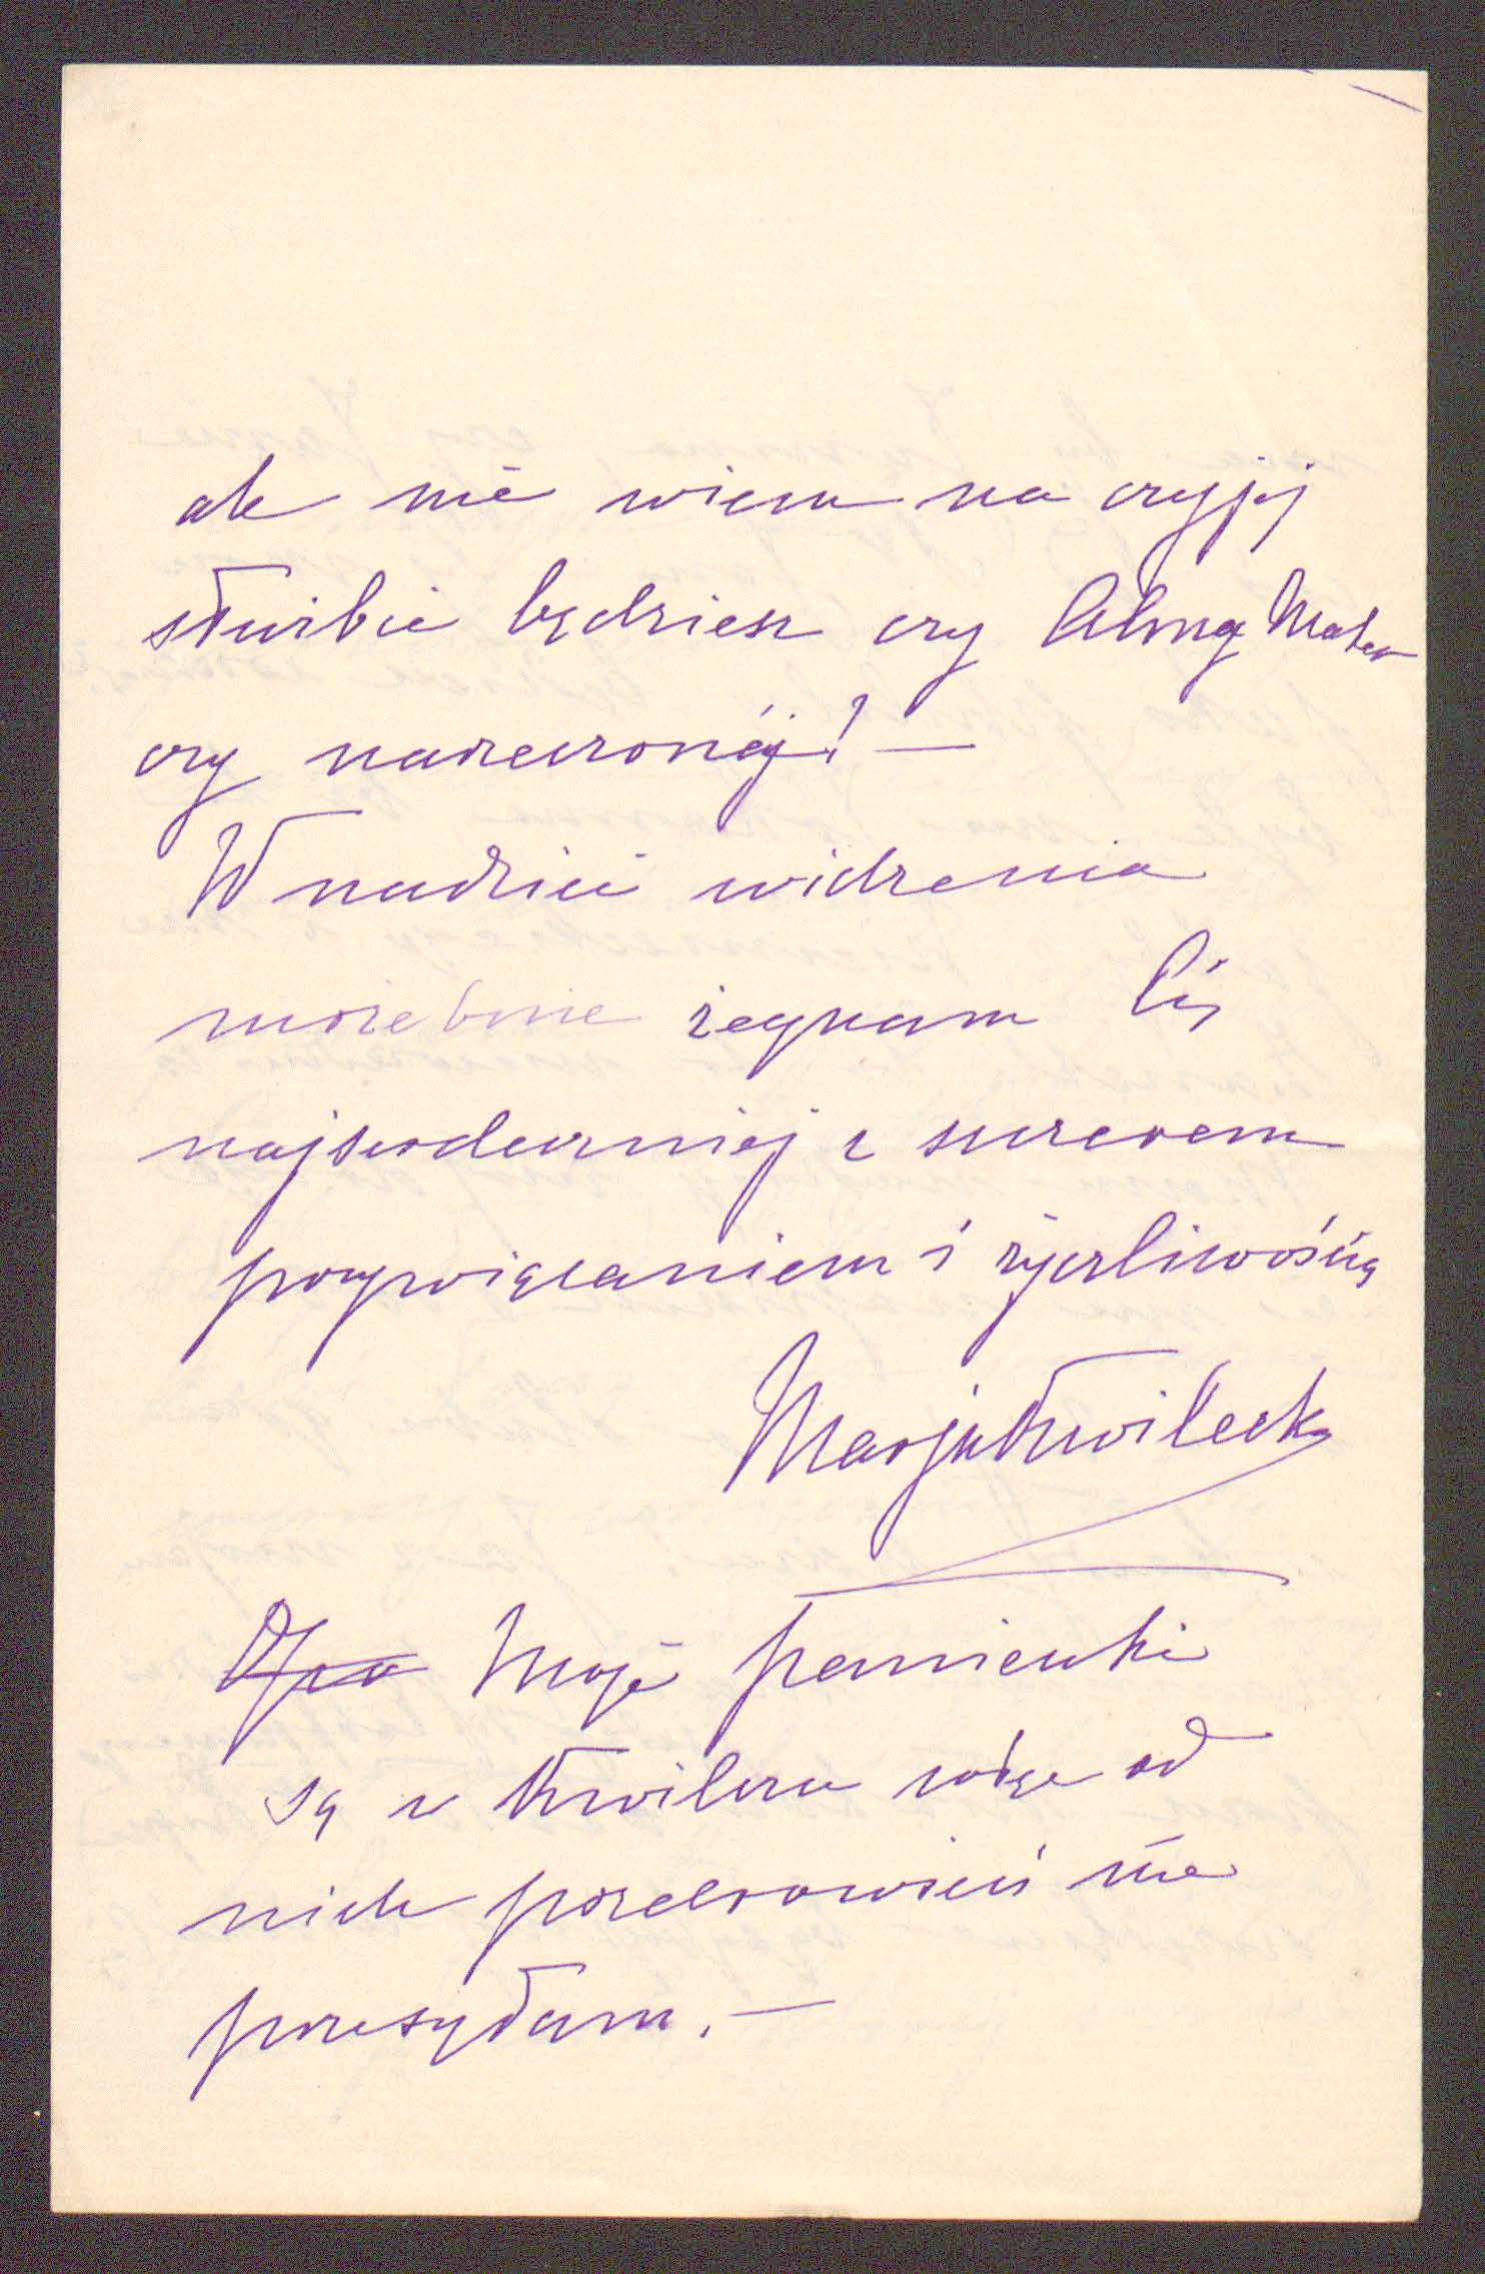 ale nie wiem na czyjéj
służbie będziesz czy Almy Mater
czy narzeczonéj! —
W nadziei widzenia
możebnie żegnam Cię
najserdeczniéj z szczerem
przywiązaniem i życzliwością
Marja Kwilecka
Moje panienki
są w Kwilczu więc od
nich pozdrowień nie
przesyłam. —